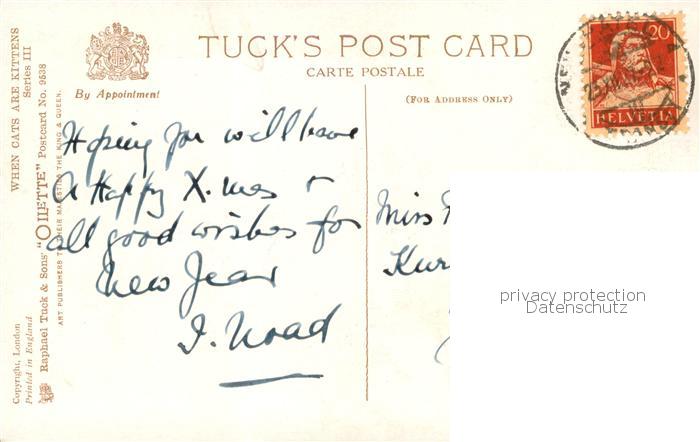 WHEN CATS ARE KITTENS
Series III
TUCK'S POST CARD
CARTE POSTALE
By Appointment
(FOR ADDRESS ONLY)
20
HELVETIA
Hoping you will have
A Happy X.mas +
all good wishes for
New Year
I. Noad
Miss
Kur
Copyright, London
Printed in England
Raphael Tuck & Sons' "OILETTE" Postcard No. 9538
ART PUBLISHERS TO THEIR MAJESTIES THE KING & QUEEN.
privacy protection
Datenschutz